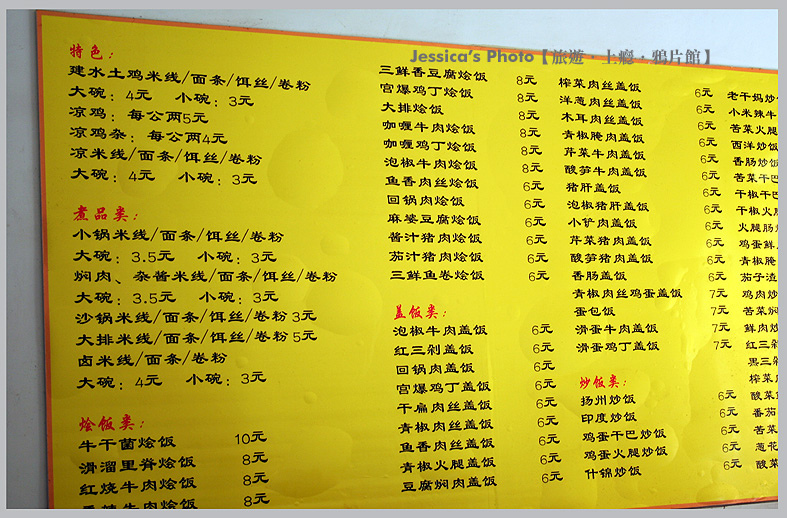 Jessica's Photo【旅遊．上癮．鴉片館】
特色：
建水土鸡米线/面条/饵丝/卷粉
大碗：4元 小碗：3元
凉鸡：每公两5元
凉鸡杂：每公两4元
凉米线/面条/饵丝/卷粉
大碗：4元 小碗：3元
煮品类：
小锅米线/面条/饵丝/卷粉
大碗：3.5元 小碗：3元
焖肉、杂酱米线/面条/饵丝/卷粉
大碗：3.5元 小碗：3元
沙锅米线/面条/饵丝/卷粉 3元
大排米线/面条/饵丝/卷粉 5元
卤米线/面条/卷粉
大碗：4元 小碗：3元
烩饭类：
牛干菌烩饭 10元
滑溜里脊烩饭 8元
红烧牛肉烩饭 8元
牛肉烩饭 8元
三鲜香豆腐烩饭 8元
宫爆鸡丁烩饭 8元
大排烩饭 8元
咖喱牛肉烩饭 8元
咖喱鸡丁烩饭 8元
泡椒牛肉烩饭 8元
鱼香肉丝烩饭 6元
回锅肉烩饭 6元
麻婆豆腐烩饭 6元
酱汁猪肉烩饭 6元
茄汁猪肉烩饭 6元
三鲜鱼卷烩饭 6元
盖饭类：
泡椒牛肉盖饭 6元
红三剁盖饭 6元
回锅肉盖饭 6元
宫爆鸡丁盖饭 6元
干扁肉丝盖饭 6元
青椒肉丝盖饭 6元
鱼香肉丝盖饭 6元
青椒火腿盖饭 6元
豆腐焖肉盖饭 6元
榨菜肉丝盖饭 6元
洋葱肉丝盖饭 6元
木耳肉丝盖饭 6元
青椒腌肉盖饭 6元
芹菜牛肉盖饭 6元
酸笋牛肉盖饭 6元
猪肝盖饭 6元
泡椒猪肝盖饭 6元
小铲肉盖饭 6元
芹菜猪肉盖饭 6元
酸笋猪肉盖饭 6元
香肠盖饭 6元
青椒肉丝鸡蛋盖饭 7元
蛋包饭 7元
滑蛋牛肉盖饭 7元
滑蛋鸡丁盖饭 7元
炒饭类：
扬州炒饭 6元
印度炒饭 6元
鸡蛋干巴炒饭 6元
鸡蛋火腿炒饭 6元
什锦炒饭 6元
老干妈炒
小米辣牛
苦菜火腿
西洋炒饭
香肠炒饭
苦菜干巴
干椒干巴
干椒火腿
火腿肠炒
鸡蛋鲜
青椒腌
茄子渣
鸡肉炒
苦菜焖
鲜肉炒
红三剁
黑三剁
榨菜
酸菜
番茄
苦菜
葱花
酸菜